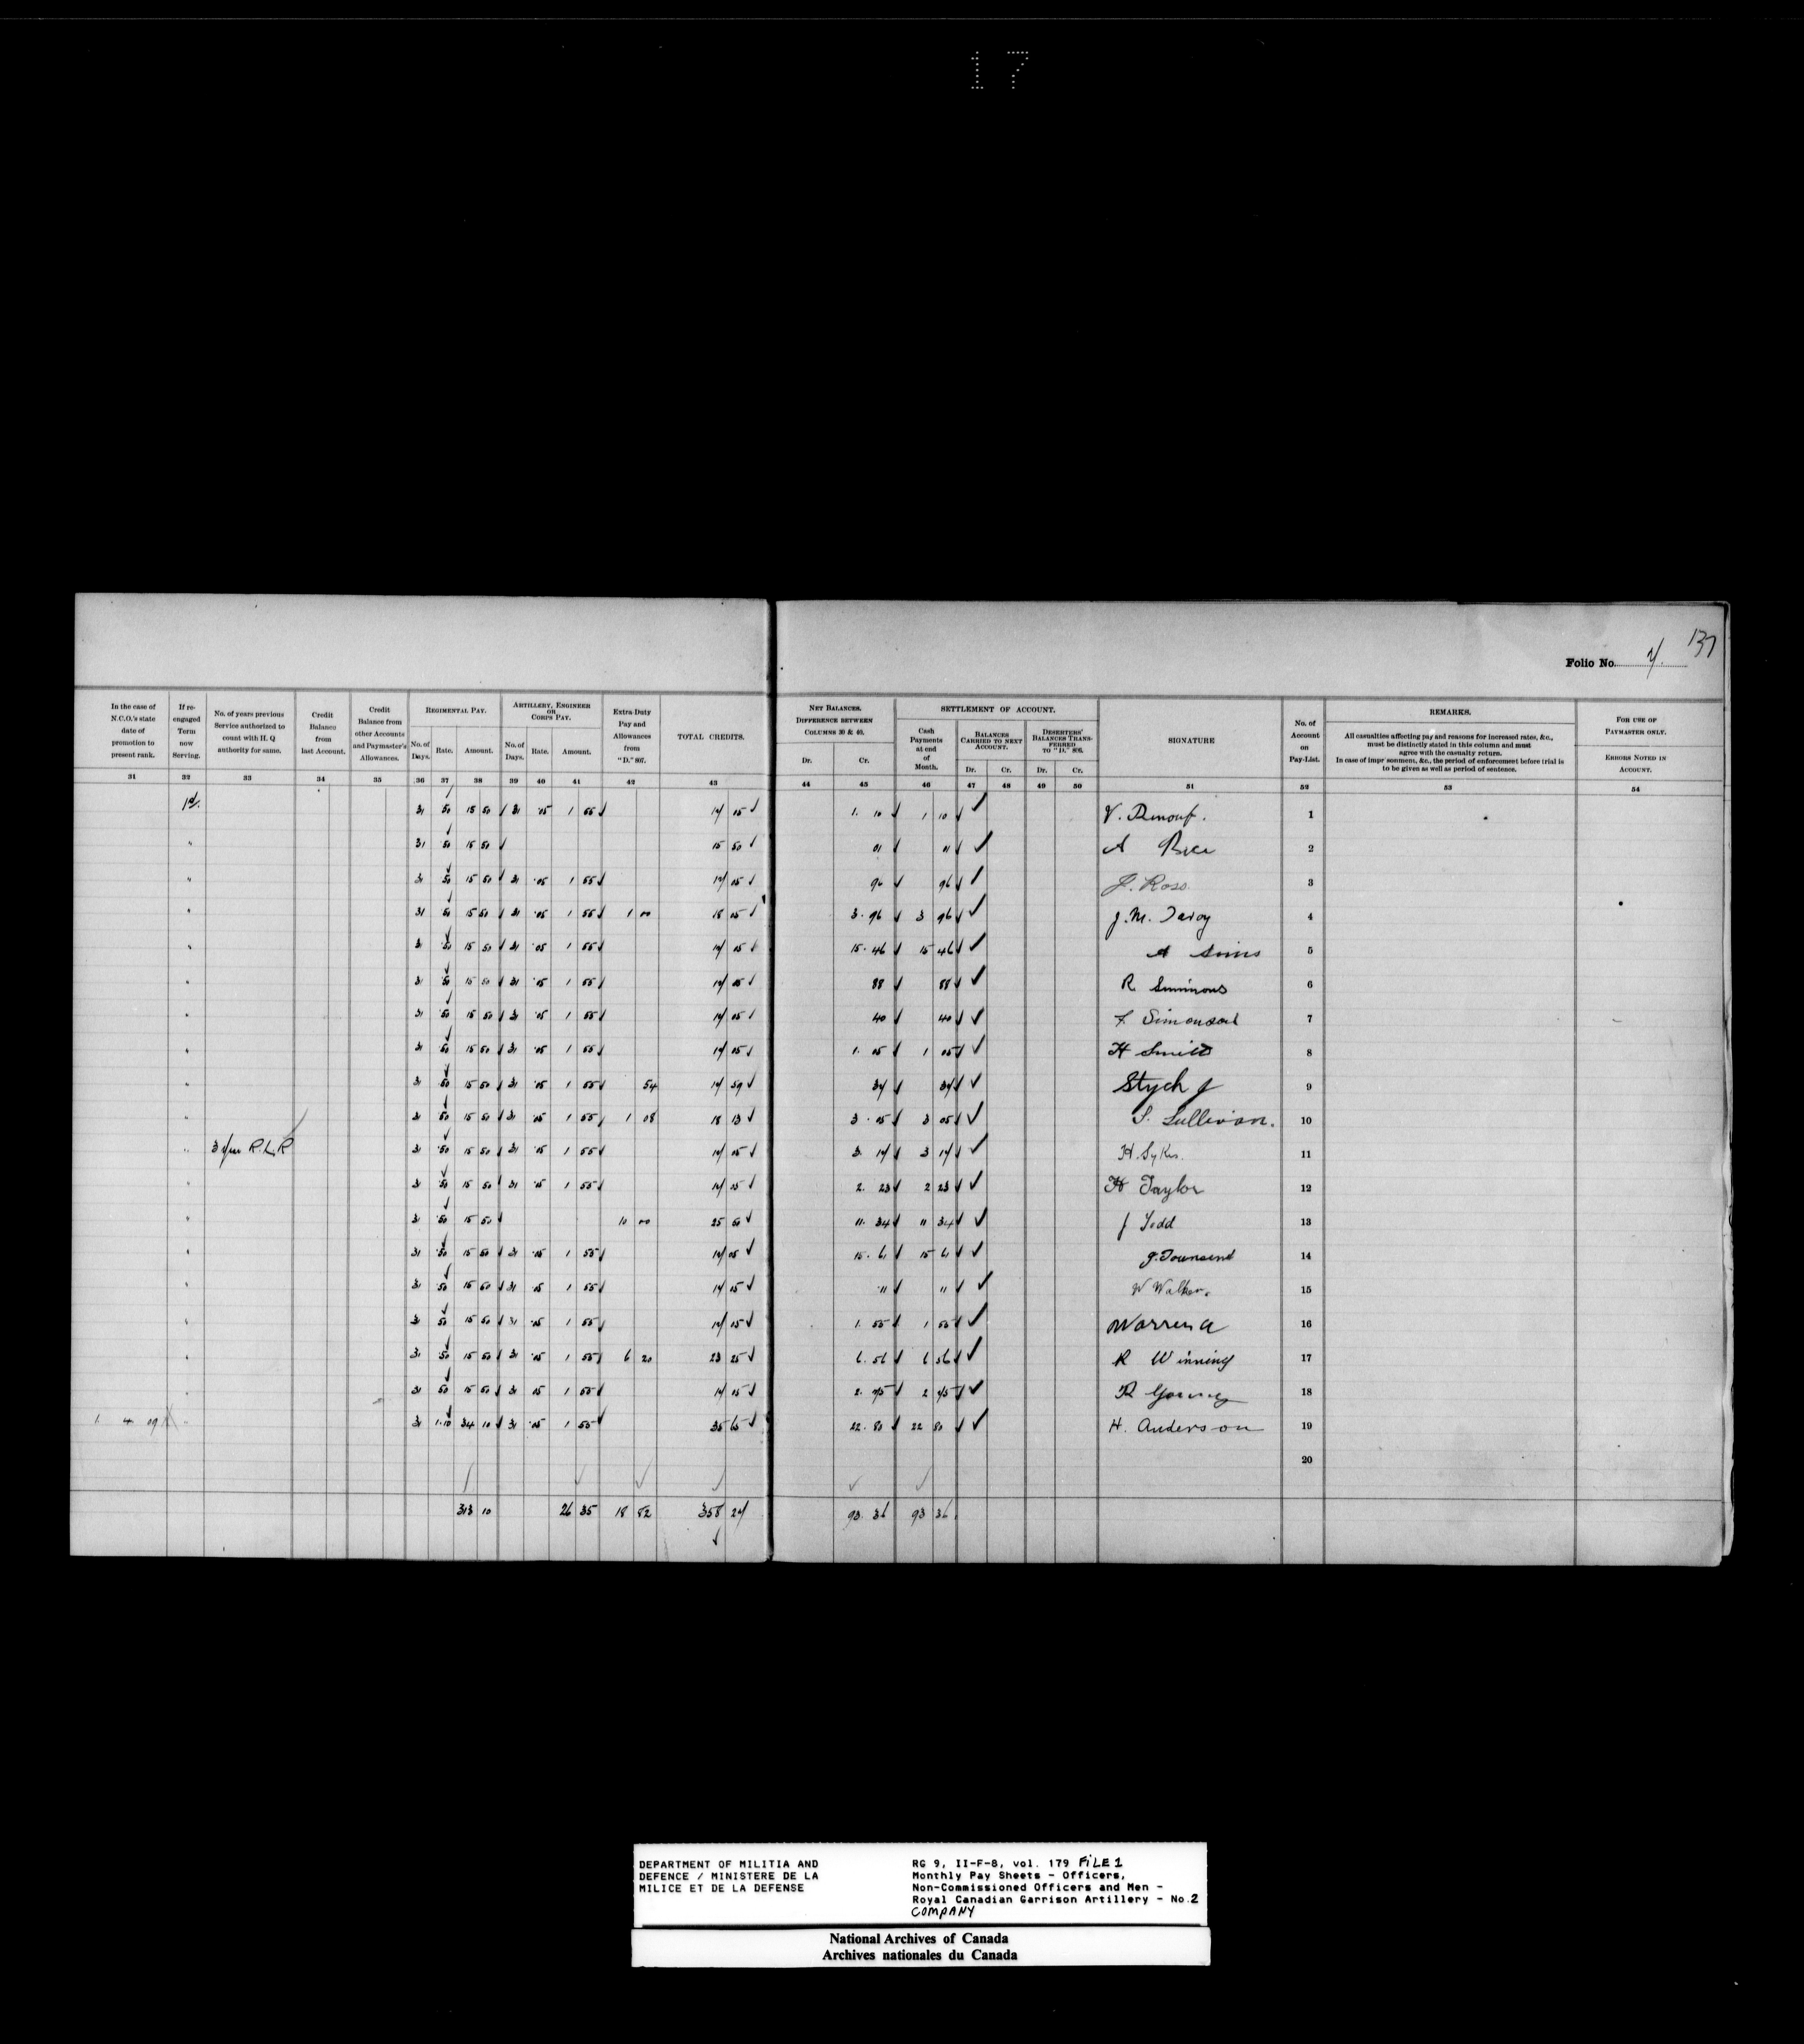 17
137
Folio No. 7.
In the case of N.C.O.'s state date of promotion to present rank.
If re-engaged Term now Serving.
No. of years previous Service authorized to count with H. Q authority for same.
Credit Balance from last Account.
Credit Balance from other Accounts and Paymaster's Allowances.
REGIMENTAL PAY.
No. of Days. Rate. Amount.
ARTILLERY, ENGINEER OR CORPS PAY.
No. of Days. Rate. Amount.
Extra-Duty Pay and Allowances from "D." 807.
TOTAL CREDITS.
NET BALANCES. DIFFERENCE BETWEEN COLUMNS 30 & 40.
Dr. Cr.
SETTLEMENT OF ACCOUNT.
Cash Payments at end of Month.
BALANCES CARRIED TO NEXT ACCOUNT.
Dr. Cr.
DESERTERS' BALANCES TRANSFERRED TO "D." 806.
Dr. Cr.
SIGNATURE
No. of Account on Pay-List.
REMARKS.
All casualties affecting pay and reasons for increased rates, &c., must be distinctly stated in this column and must agree with the casualty return.
In case of impr sonment, &c., the period of enforcement before trial is to be given as well as period of sentence.
FOR USE OF PAYMASTER ONLY.
ERRORS NOTED IN ACCOUNT.
31 32 33 34 35 36 37 38 39 40 41 42 43 44 45 46 47 48 49 50 51 52 53 54
1st. 31 50 15 50 31 .05 1 55 17 05 1. 10 1 10 V. Renouf. 1
" 31 50 15 50 15 50 A Rice 2
" 31 50 15 50 31 .05 1 55 17 05 96 96 J. Ross. 3
" 31 50 15 50 31 .05 1 55 1 00 18 05 3. 96 3 96 J. M. 4
" 31 50 15 50 31 .05 1 55 17 05 15. 46 15 46 A Sims 5
" 31 50 15 50 31 .05 1 55 17 05 88 88 R Simmons 6
" 31 50 15 50 31 .05 1 55 17 05 40 40 7
" 31 50 15 50 31 .05 1 55 17 05 1. 05 1 05 H Smith 8
" 31 50 15 50 31 .05 1 55 54 17 59 37 37 Stych J 9
" 31 50 15 50 31 .05 1 55 1 08 18 13 3. 05 3 05 S. Sullivan. 10
" R.L.R 31 50 15 50 31 .05 1 55 17 05 3. 17 3 17 H. Sykes. 11
" 31 50 15 50 31 .05 1 55 17 05 2. 23 2 23 H Taylor 12
" 31 50 15 50 10 00 25 50 11. 34 11 34 J Todd 13
" 31 50 15 50 31 .05 1 55 17 05 15. 61 15 61 J. Townsend 14
" 31 50 15 50 31 .05 1 55 17 05 .11 11 W Walker. 15
" 31 50 15 50 31 .05 1 55 17 05 1. 55 1 55 Warren A 16
" 31 50 15 50 31 .05 1 55 6 20 23 25 6. 56 6 56 R Winning 17
" 31 50 15 50 31 05 1 55 17 05 2. 75 2 75 R Young 18
1. 4 09 " 31 1.10 34 10 31 .05 1 55 35 65 22. 80 22 80 H. Anderson 19
20
313 10 26 35 18 82 358 27 93. 36 93 36
DEPARTMENT OF MILITIA AND
DEFENCE / MINISTERE DE LA
MILICE ET DE LA DEFENSE
RG 9, II-F-8, vol. 179 FiLE 1
Monthly Pay Sheets - Officers,
Non-Commissioned Officers and Men -
Royal Canadian Garrison Artillery - No.2
COMPANY
National Archives of Canada
Archives nationales du Canada